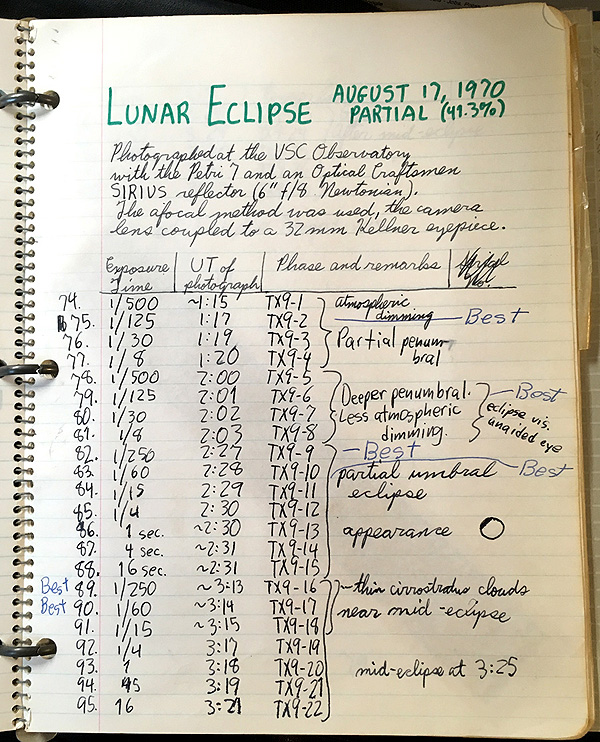 LUNAR ECLIPSE AUGUST 17, 1970
PARTIAL (41.3%)
Photographed at the VSC Observatory
with the Petri 7 and an Optical Craftsmen
SIRIUS reflector (6" f/8 Newtonian).
The afocal method was used, the camera
lens coupled to a 32mm Kellner eyepiece.
Exposure Time | UT of photograph | Phase and remarks
74. 1/500 ~1:15 TX9-1 atmospheric
dimming — Best
75. 1/125 1:17 TX9-2
76. 1/30 1:19 TX9-3 Partial penum-
77. 1/8 1:20 TX9-4 bral
78. 1/500 2:00 TX9-5
79. 1/125 2:01 TX9-6 Deeper penumbral. — Best
80. 1/30 2:02 TX9-7 Less atmospheric eclipse vis.
81. 1/8 2:03 TX9-8 dimming. unaided eye
82. 1/250 2:27 TX9-9 — Best
83. 1/60 2:28 TX9-10 partial umbral — Best
84. 1/15 2:29 TX9-11 eclipse
85. 1/4 2:30 TX9-12
86. 1 sec. ~2:30 TX9-13 appearance
87. 4 sec. ~2:31 TX9-14
88. 16 sec. ~2:31 TX9-15
Best 89. 1/250 ~3:13 TX9-16 ~thin cirrostratus clouds
Best 90. 1/60 ~3:14 TX9-17 near mid-eclipse
91. 1/15 ~3:15 TX9-18
92. 1/4 3:17 TX9-19
93. 1 3:18 TX9-20 mid-eclipse at 3:25
94. 3:19 TX9-21
95. 16 3:21 TX9-22